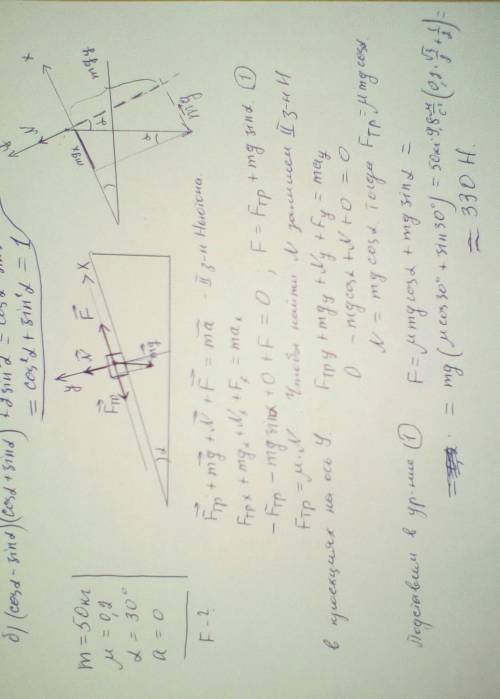 б) (cosα - sinα)(cosα + sinα) + 2sin²α = cos²α
= cos²α + sin²α = 1
m = 50 кг
μ = 0,2
α = 30°
a = 0
F - ?
y
N
F
X
Fтр
mg
α
X
y
N
mgx
mgy
mg
α
α
Fтр + mg + N + F = ma - II з-н Ньютона.
Fтр x + mgx + Nx + Fx = max
- Fтр - mg sinα + 0 + F = 0 ; F = Fтр + mg sinα. ①
Fтр = μ·N Чтобы найти N запишем II з-н Н
в проекциях на ось y. Fтр y + mgy + Ny + Fy = may
0 - mg cosα + N + 0 = 0
N = mg cosα тогда Fтр = μmg cosα
Подставим в ур-ние ① F = μmg cosα + mg sinα =
= mg (μ cos30° + sin30°) = 50кг·9,8 м/с² (0,2·√3/2 + 1/2) =
≈ 330 Н.